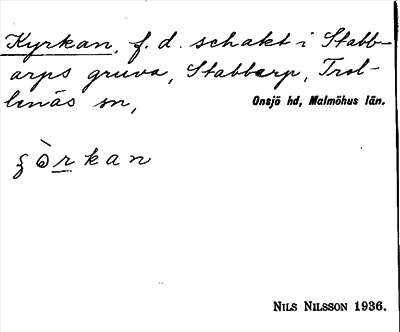 Kyrkan, f. d. schakt i Stabb-
arps gruva, Stabbarp, Trol-
lenäs sn, Onsjö hd, Malmöhus län.
NILS NILSSON 1936.